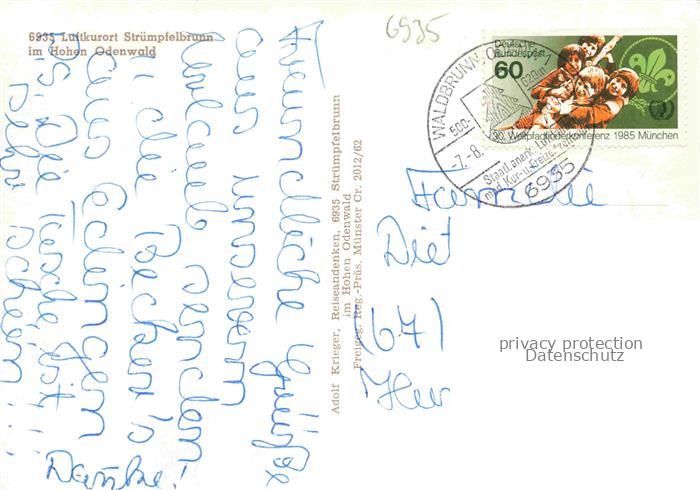 6935 Luftkurort Strümpfelbrunn
im Hohen Odenwald
6935
Deutsche
Bundespost
60
30. Weltpfadfinderkonferenz 1985 München
WALDBRUNN, O
620m
500-
-7.-8.
Staatl. anerk. Luftk
und Kur- u. Freizei
6935
Freundliche Grüße
aus unserem
Urlaub senden
die
aus
P.S. Die Tasche ist
sehr schön!!!
Danke!
Adolf Krieger, Reiseandenken, 6935 Strümpfelbrunn
im Hohen Odenwald
Freigeg. Reg.-Präs. Münster Cr. 2012/62
Familie
Diet
(64)
privacy protection
Datenschutz